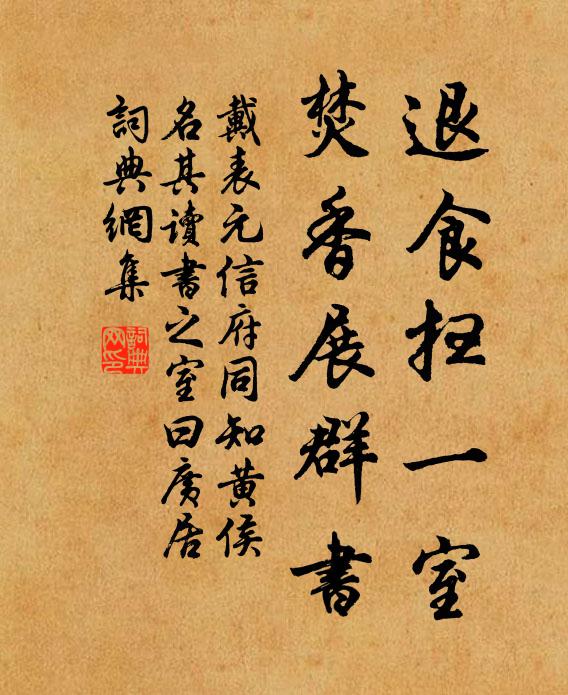 退食扫一室
焚香展群書
戴表元信府同知黄侯
名其讀書之室曰廣居
詞典網集
詞典
网印